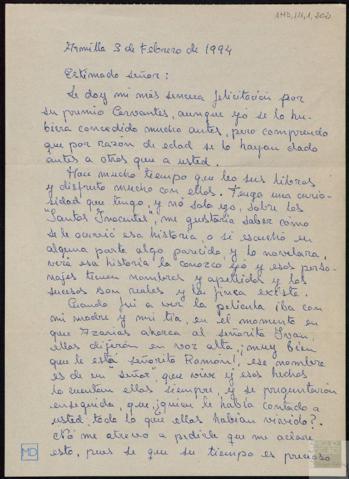 AMD, 111, 1, 202
Armilla 3 de Febrero de 1994
Estimado Señor:
Le doy mi más sincera felicitación por
su premio Cervantes, aunque yo se lo hu-
biera concedido mucho antes, pero comprendo
que por razón de edad se lo hayan dado
antes a otros que a usted.
Hace mucho tiempo que leo sus libros
y disfruto mucho con ellos. Tengo una curio-
sidad que tengo, y no solo yo, sobre los
"Santos Inocentes", me gustaría saber cómo
se le ocurrió esa historia, o si escuchó en
alguna parte algo parecido, y lo novelara,
verá esa historia la conozco yo y esos perso-
najes tienen nombres y apellidos y los
sucesos son reales y la finca existe.
Cuando fui a ver la película iba con
mi madre y mi tía, en el momento en
que Azarías ahorca al señorito Iván
ellas dijeron en voz alta, ¡muy bien
que le está señorito Ramón!, ese nombre
es de un señor, que vive y esos hechos
lo cuentan ellas siempre, y se preguntaron
enseguida, que ¿quien le había contado a
usted todo lo que ellas habían vivido?.
No me atrevo a pedirle que me aclare
esto, pues se que su tiempo es precioso
MD